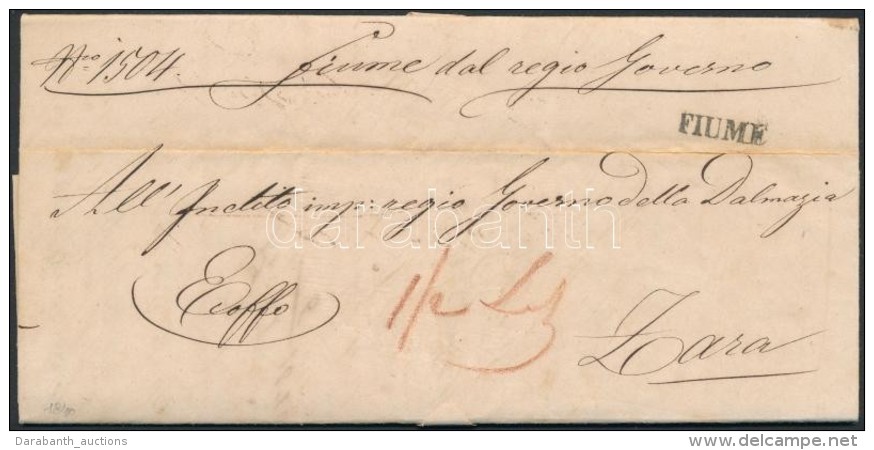 Nro 1504. Fiume dal regio Governo
FIUME
All' Inclito imp: regio Governo della Dalmazia
darabanth
Exoffo 1/2 Lt
Zara
1840
Darabanth_auctions delcampe.net